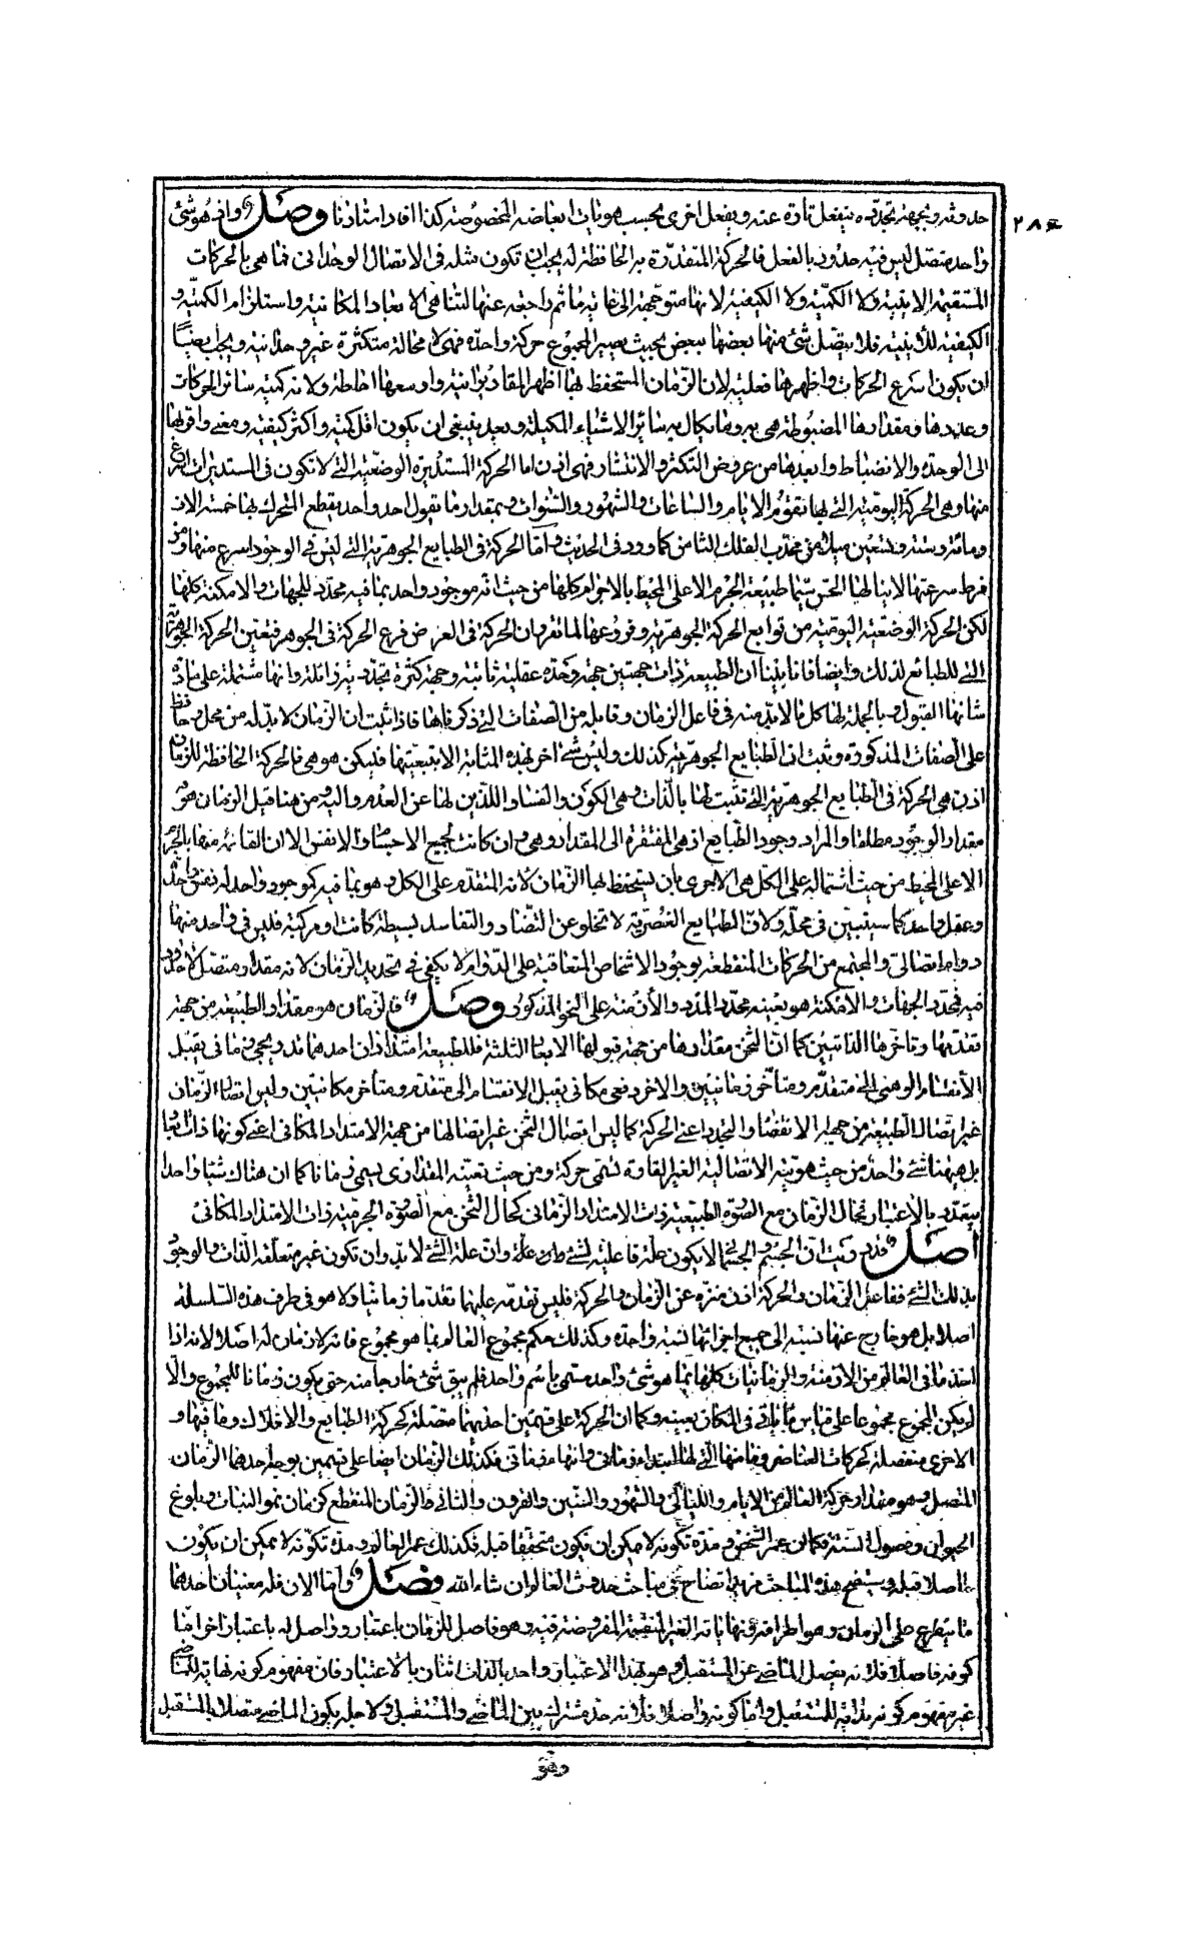 حدوثه وبجهة تجدده ينفعل تارة عنه ويفعل اخرى بحسب هويات ابعاضه المخصوصة كذا افاد استادنا وصل واذ هو شئ
٢٨٤
واحد متصل ليس فيه حدود بالفعل فالحركة المتقدرة به الحافظة له يجب ان تكون مثله في الاتصال الوحداني فما هي بالحركات
المستقيمة الاينية ولا الكمية ولا الكيفية لانها متوجهة الى غاية ما ثم راجعة عنها لتناهي الابعاد المكانية واستلزام الكمية و
الكيفية للأينية فلا يتصل شئ منها بعضها ببعض بحيث يصير المجموع حركة واحدة فهي لا محالة متكثرة غير وحدانية ويجب ايضا
ان يكون اسرع الحركات واظهرها فعلية لان الزمان المستحفظ بها اظهر المقادير انية واوسعها احاطة ولانه كمية سائر الحركات
وعددها ومقدارها المضبوطة هي به وما يكال به سائر الاشياء المكيلة ويعد ينبغي ان يكون اقل كمية واكثر كيفية ومعنى واقربها
الى الوحدة والانضباط وابعدها من عروض التكثر والانتشار فهي اذن اما الحركة المستديرة الوضعية التي لا تكون في المستديرات اسرع
منها وهي الحركة اليومية التي بها تقوم الايام والساعات والشهور والسنوات وبمقدار ما يقول احد واحد يقطع المتحرك بها خمسة الاف
ومائة وستة وتسعين ميلا من محدب الفلك الثامن كما ورد في الحديث واما الحركة في الطبايع الجوهرية التي ليس في الوجود اسرع منها ومن
فرط سرعتها لا ينالها الحس سيما طبيعة الجرم الاعلى المحيط بالاجرام كلها من حيث انه موجود واحد بما فيه محدد للجهات والامكنة كلها
لكن الحركة الوضعية اليومية من توابع الحركة الجوهرية وفروعها لما تقرر ان الحركة في العرض فرع الحركة في الجوهر فتعين الحركة الجوهرية
التي للطبائع لذلك وايضا فانا بينا ان الطبيعة ذات جهتين جهة وحدة عقلية ثابتة وجهة كثرة تجددية زائلة وانها مشتملة على مادة
شانها القبول وبالجملة لها كل ما لا بد منه في فاعل الزمان وقابله من الصفات التي ذكرناها فاذا ثبت ان الزمان لا بد له من محل وحافظ
على الصفات المذكورة وثبت ان الطبايع الجوهرية كذلك وليس شئ اخر بهذه المثابة الا بتبعيتها فليكن هو هي فالحركة الحافظة للزمان
اذن هي الحركة في الطبايع الجوهرية التي تثبت لها بالذات وهي الكون والفساد اللذين لها عن العدم واليه ومن هنا قيل الزمان هو
مقدار الوجود مطلقا والمراد وجود الطبايع اذ هي المفتقرة الى المقدار وهي وان كانت لجميع الاجسام والانفس الا ان القائمة منها بالجرم
الاعلى المحيط من حيث اشتماله على الكل هي الاحرى بان يستحفظ بها الزمان لانه المتقدم على الكل وهو بما فيه كموجود واحد له نفس واحدة
وعقل واحد كما سيتبين في محله ولان الطبايع العنصرية لا تخلو عن التضاد والتفاسد بسيطة كانت او مركبة فليس في واحد منها
دوام اتصالي والمجتمع من الحركات المنقطعة بوجود الاشخاص المتعاقبة على الدوام لا يكفي في تحديد الزمان لانه مقدار متصل لا حدود
فيه فمحدد الجهات والامكنة هو بعينه محدد المدد والأزمنة على النحو المذكور وصل فالزمان هو مقدار الطبيعة من جهة
تقدمها وتأخرها الذاتيين كما ان الثخن مقدارها من جهة قبولها الابعاد الثلثة فللطبيعة امتدادان احدهما تدريجي زماني يقبل
الأنقسام الوهمي الى متقدم ومتأخر زمانيين والاخر دفعي مكاني يقبل الانقسام الى متقدم ومتأخر مكانيين وليس اتصال الزمان
غير اتصال الطبيعة من جهة الانقضاء والتجدد اعني الحركة كما ليس اتصال الثخن غير اتصالها من جهة الامتداد المكاني اعني كونها ذات ابعاد
بل هيهنا شئ واحد من حيث هويته الاتصالية الغير القارة تسمى حركة ومن حيث تعينه المقداري يسمى زمانا كما ان هناك شيئا واحدا
يتعدد بالاعتبار فحال الزمان مع الصورة الطبيعية ذات الامتداد الزماني كحال الثخن مع الصورة الجرمية ذات الامتداد المكاني
اصل قد دريت ان الجسم والجسماني لا يكون علة فاعلية لشئ وان علة الشئ لا بد وان تكون غير متعلقة الذات والوجود
بذلك الشئ ففاعل الزمان والحركة اذن منزه عن الزمان والحركة فليس تقدمه عليهما تقدما زمانيا ولا هو في طرف هذه السلسلة
اصلا بل هو خارج عنها نسبته الى جميع اجزائها نسبة واحدة وكذلك حكم مجموع العالم بما هو مجموع فانه لا زمان له اصلا لانه اذا
اخذ ما في العالم من الازمنة والزمانيات كلها بما هو شئ واحد مسمى باسم واحد فلم يبق شئ خارجا منه حتى يكون زمانا للمجموع والا
لم يكن المجموع مجموعا على قياس ما يأتي في المكان بعينه وكما ان الحركة على قسمين احديهما متصلة كحركة الطبايع والافلاك وما فيها و
الاخرى منفصلة كحركات العناصر وما منها التي لها ابتداء زماني وانتهاء زماني فكذلك الزمان ايضا على قسمين يوجد احدهما الزمان
المتصل وهو مقدار حركة العالم من الايام والليالي والشهور والسنين والقرون والثاني الزمان المنقطع كزمان نمو النبات وبلوغ
الحيوان وفصول السنة فكما ان عمر الشخص ومدة تكونه لا يمكن ان يكون متحققا قبله فكذلك عمر العالم ومدة تكونه لا يمكن ان يكون
اصلا قبله وسيتضح هذه المباحث مزيد اتضاح في مباحث حدوث العالم ان شاء الله فصل واما الان فله معنيان احدهما
ما يتفرع على الزمان وهو اطرافه ونهاياته الغير المنقسمة المفروضة فيه وهو فاصل للزمان باعتبار وواصل له باعتبار اخر اما
كونه فاصلا فلانه يفصل الماضي عن المستقبل وهو بهذا الاعتبار واحد بالذات اثنان بالاعتبار فان مفهوم كونه نهاية للماضي
غير مفهوم كونه بداية للمستقبل واما كونه واصلا فلانه حد مشترك بين الماضي والمستقبل ولاجله يكون الماضي متصلا بالمستقبل
وهو